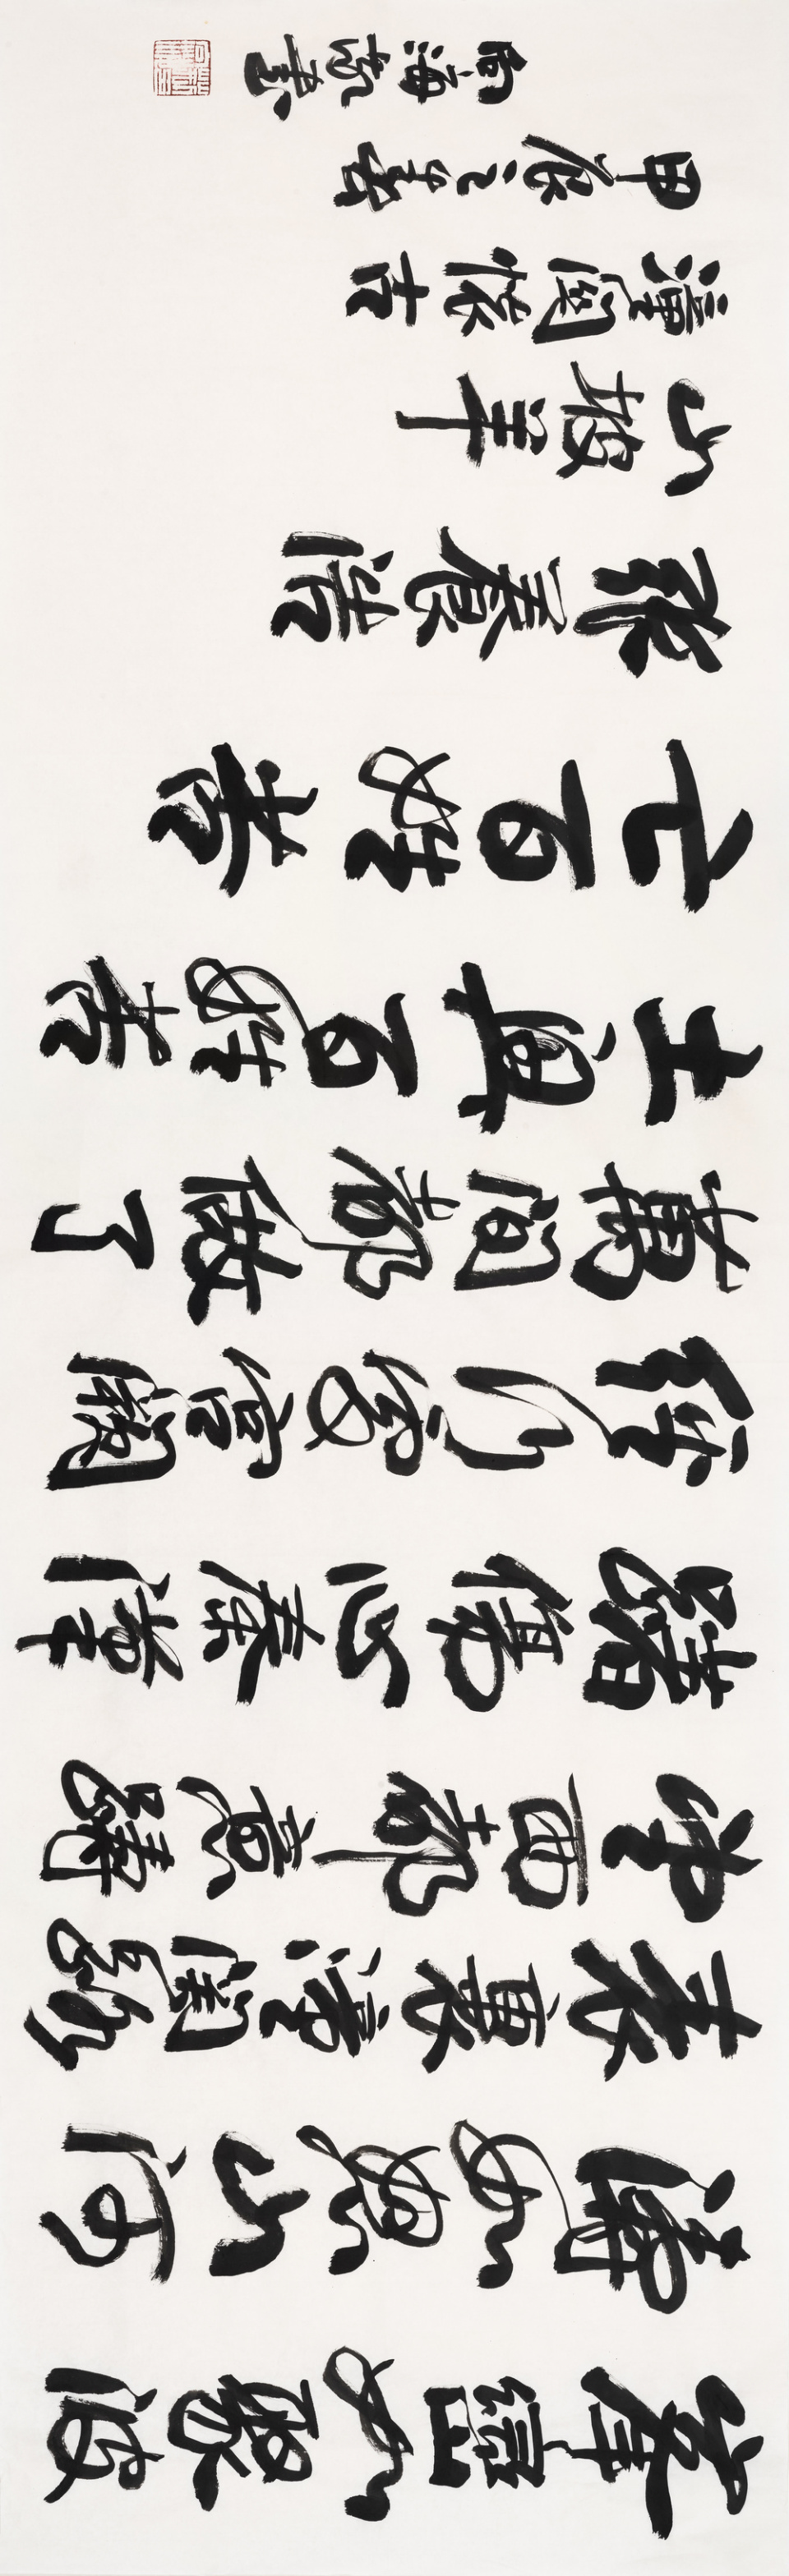 峯巒如聚波
濤如怒山河
表裏潼關路
望西都意躊
躇傷心秦漢
經行處宮闕
萬間都做了
土興百姓苦
亡百姓苦
張養浩
山坡羊
潼關懷古
甲辰之春
海書